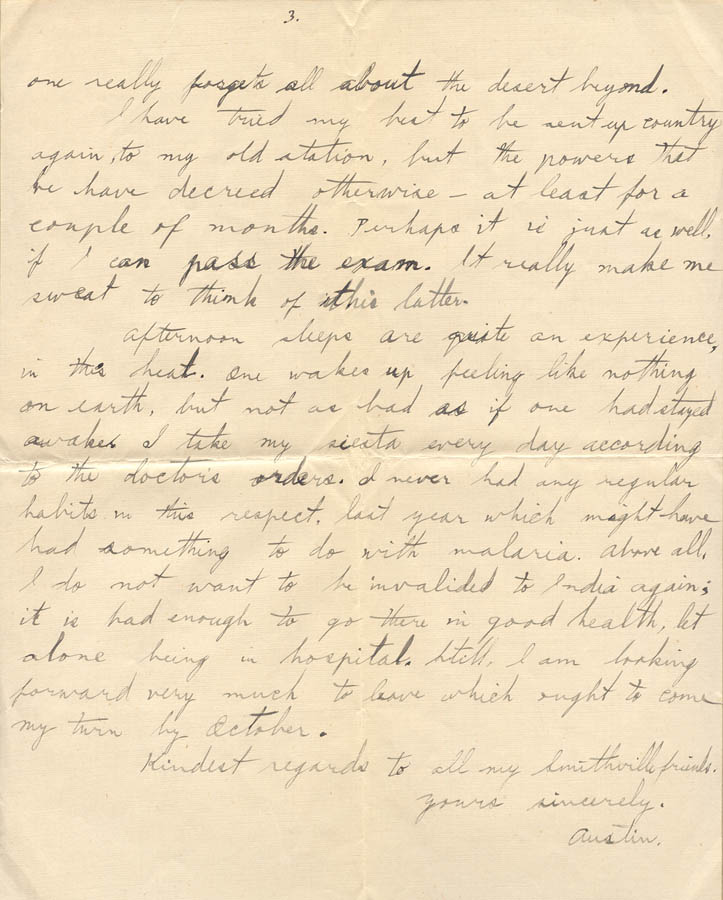 3.
one really forgets all about the desert beyond.
I have tried my best to be sent up country
again, to my old station, but the powers that
be have decreed otherwise – at least for a
couple of months. Perhaps it is just as well,
if I can pass the exam. It really make me
sweat to think of this latter.
Afternoon sleeps are quite an experience,
in this heat. One wakes up feeling like nothing
on earth, but not as bad as if one had stayed
awake. I take my siesta every day according
to the doctor's orders. I never had any regular
habits in this respect, last year which might have
had something to do with malaria. Above all,
I do not want to be invalided to India again;
it is bad enough to go there in good health, let
alone being in hospital. Still, I am looking
forward very much to leave which ought to come
my turn by October.
Kindest regards to all my Smithville friends.
Yours sincerely.
Austin.